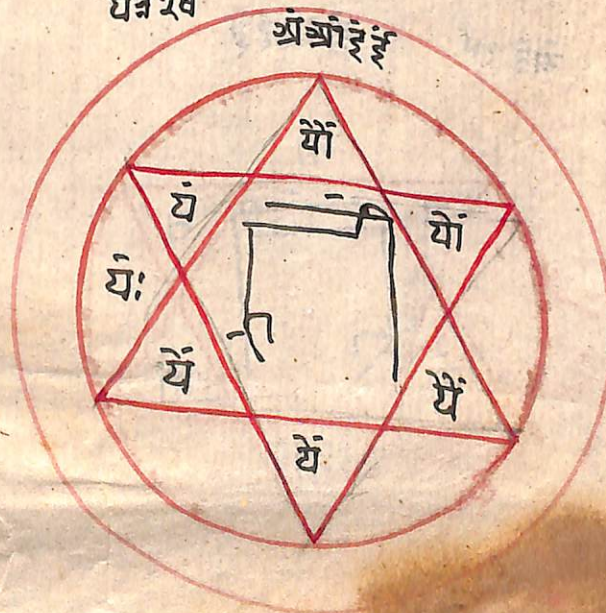 यंत्र २४
अंआंइंईं
यौं
यं
यों
यंः
यें
यैं
यें